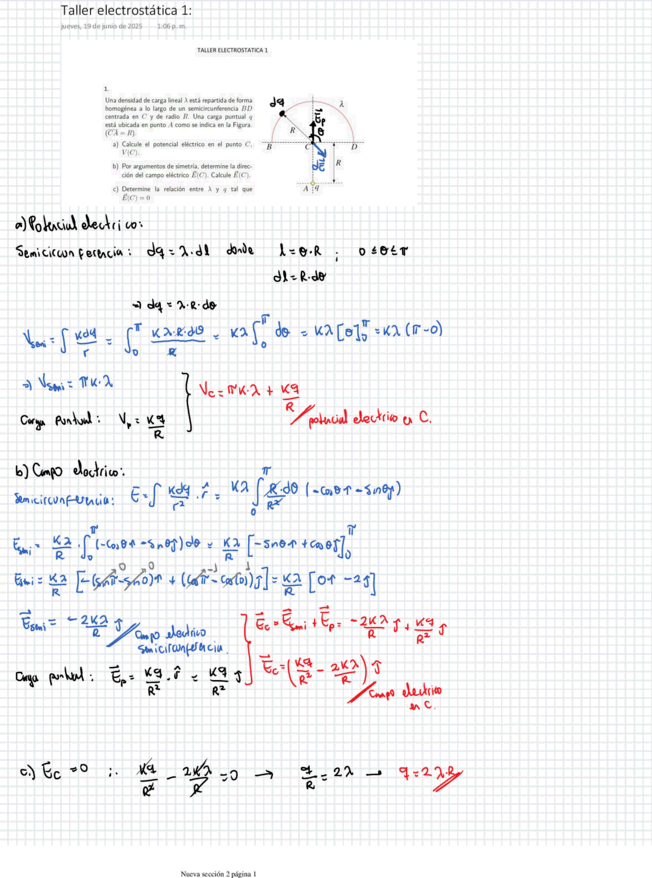 Taller electrostática 1:
jueves, 19 de junio de 2025 1:06 p. m.
TALLER ELECTROSTATICA 1
1.
Una densidad de carga lineal λ está repartida de forma
homogénea a lo largo de un semicircunferencia BD
centrada en C y de radio R. Una carga puntual q
está ubicada en punto A como se indica en la Figura.
(CA = R).
a) Calcule el potencial eléctrico en el punto C,
V(C).
b) Por argumentos de simetría, determine la direc-
ción del campo eléctrico E⃗(C). Calcule E⃗(C).
c) Determine la relación entre λ y q tal que
E⃗(C) = 0
dq λ
R θ
B C D
R
A q
a) Potencial electrico:
Semicircunferencia: dq = λ·dl donde l = θ·R ; 0 ≤ θ ≤ π
dl = R·dθ
⇒ dq = λ·R·dθ
V_semi = ∫ Kdq/r = ∫₀^π Kλ·R·dθ/R = Kλ ∫₀^π dθ = Kλ [θ]₀^π = Kλ (π-0)
⇒ V_semi = πK·λ
V_c = πK·λ + Kq/R
Carga Puntual: V_p = Kq/R
potencial electrico en C.
b) Campo electrico:
Semicircunferencia: E = ∫ Kdq/r² · r̂ = Kλ ∫₀^π R·dθ/R² (-cosθ î - sinθ ĵ)
E_semi = Kλ/R · ∫₀^π (-cosθ î - sinθ ĵ) dθ = Kλ/R [-sinθ î + cosθ ĵ]₀^π
E_semi = Kλ/R [-(sin π - sin 0) î + (cos π - cos(0)) ĵ] = Kλ/R [0 î - 2 ĵ]
0 0 -1 1
E⃗_semi = -2Kλ/R ĵ
Campo electrico
semicircunferencia.
E⃗_c = E⃗_semi + E⃗_p = -2Kλ/R ĵ + Kq/R² ĵ
Carga puntual: E⃗_p = Kq/R² · r̂ = Kq/R² ĵ
E⃗_c = (Kq/R² - 2Kλ/R) ĵ
Campo electrico
en C.
c.) E_C = 0 ∴ Kq/R² - 2Kλ/R = 0 → q/R = 2λ → q = 2λ·R
Nueva sección 2 página 1